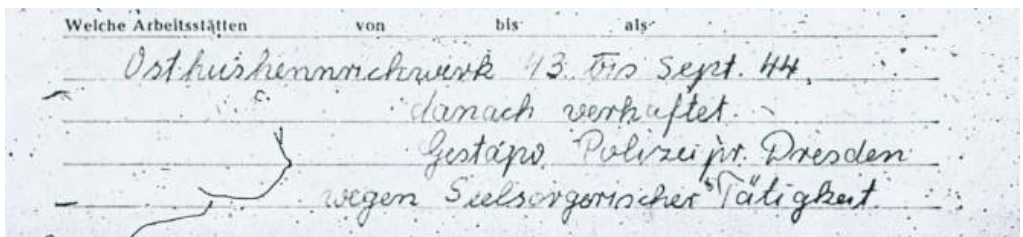 Welche Arbeitsstätten von bis als
Osthushennrichwerk 43 bis Sept. 44,
danach verhaftet.
Gestapo Polizeipr. Dresden
wegen Seelsorgerischer "Tätigkeit.